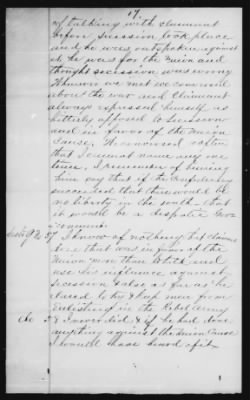 17.
of talking with claimant
before secession took place
and he was outspoken against
it he was for the Union and
thought secession was wrong
Whenever we met we conversed
about the war and Claimant
always expressed himself as
bitterly opposed to Secession
and in favor of the Union
Cause. We conversed so often
that I cannot name any one
time. I remember of hearing
him say that if the Confederates
succeeded that there would be
no liberty in the south that
it would be a despotic Gov
ernment.
I know of nothing that claimant
did that was in favor of the
Union more than to talk and
use his influence against
secession & also as far as he
dared to try & keep men from
Enlisting in the Rebel Army
He never did & if he had done
anything against the Union Cause
I would have heard of it.